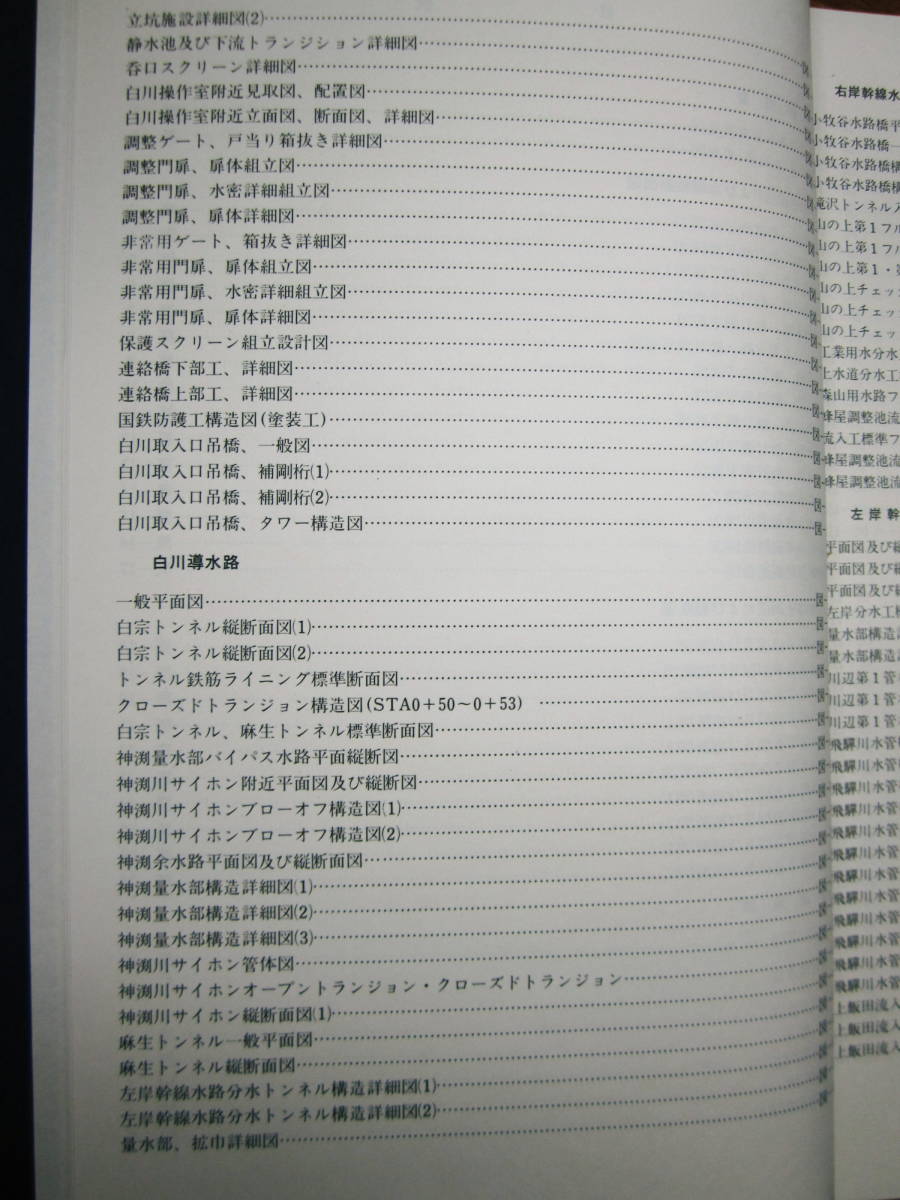 立坑施設詳細図(2)
静水池及び下流トランジション詳細図
呑口スクリーン詳細図
白川操作室附近見取図、配置図
白川操作室附近立面図、断面図、詳細図
調整ゲート、戸当り箱抜き詳細図
調整門扉、扉体組立図
調整門扉、水密詳細組立図
調整門扉、扉体詳細図
非常用ゲート、箱抜き詳細図
非常用門扉、扉体組立図
非常用門扉、水密詳細組立図
非常用門扉、扉体詳細図
保護スクリーン組立設計図
連絡橋下部工、詳細図
連絡橋上部工、詳細図
国鉄防護工構造図(塗装工)
白川取入口吊橋、一般図
白川取入口吊橋、補剛桁(1)
白川取入口吊橋、補剛桁(2)
白川取入口吊橋、タワー構造図
白川導水路
一般平面図
白宗トンネル縦断面図(1)
白宗トンネル縦断面図(2)
トンネル鉄筋ライニング標準断面図
クローズドトランジョン構造図(STA0+50〜0+53)
白宗トンネル、麻生トンネル標準断面図
神渕量水部バイパス水路平面縦断図
神渕川サイホン附近平面図及び縦断図
神渕川サイホンブローオフ構造図(1)
神渕川サイホンブローオフ構造図(2)
神渕余水路平面図及び縦断面図
神渕量水部構造詳細図(1)
神渕量水部構造詳細図(2)
神渕量水部構造詳細図(3)
神渕川サイホン管体図
神渕川サイホンオープントランジョン・クローズドトランジョン
神渕川サイホン縦断面図(1)
麻生トンネル一般平面図
麻生トンネル縦断面図
左岸幹線水路分水トンネル構造詳細図(1)
左岸幹線水路分水トンネル構造詳細図(2)
量水部、拡巾詳細図
右岸幹線水
小牧谷水路橋平
小牧谷水路橋一
小牧谷水路橋構
小牧谷水路橋構
滝沢トンネル入
山の上第1フル
山の上第1フル
山の上第1・第
山の上チェック
山の上チェック
山の上チェック
工業用水分水
上水道分水工
森山用水路フ
蜂屋調整池流
流入工標準フ
蜂屋調整池流
蜂屋調整池流
左岸幹
平面図及び縦
平面図及び縦
平面図及び縦
左岸分水工
量水部構造
量水部構造
川辺第1管
川辺第1管
川辺第1管
飛驒川水管
飛驒川水管
飛驒川水管
飛驒川水管
飛驒川水管
飛驒川水管
飛驒川水管
飛驒川水管
飛驒川水管
飛驒川水管
飛驒川水管
飛驒川水管
上飯田流入
上飯田流入
上飯田流入